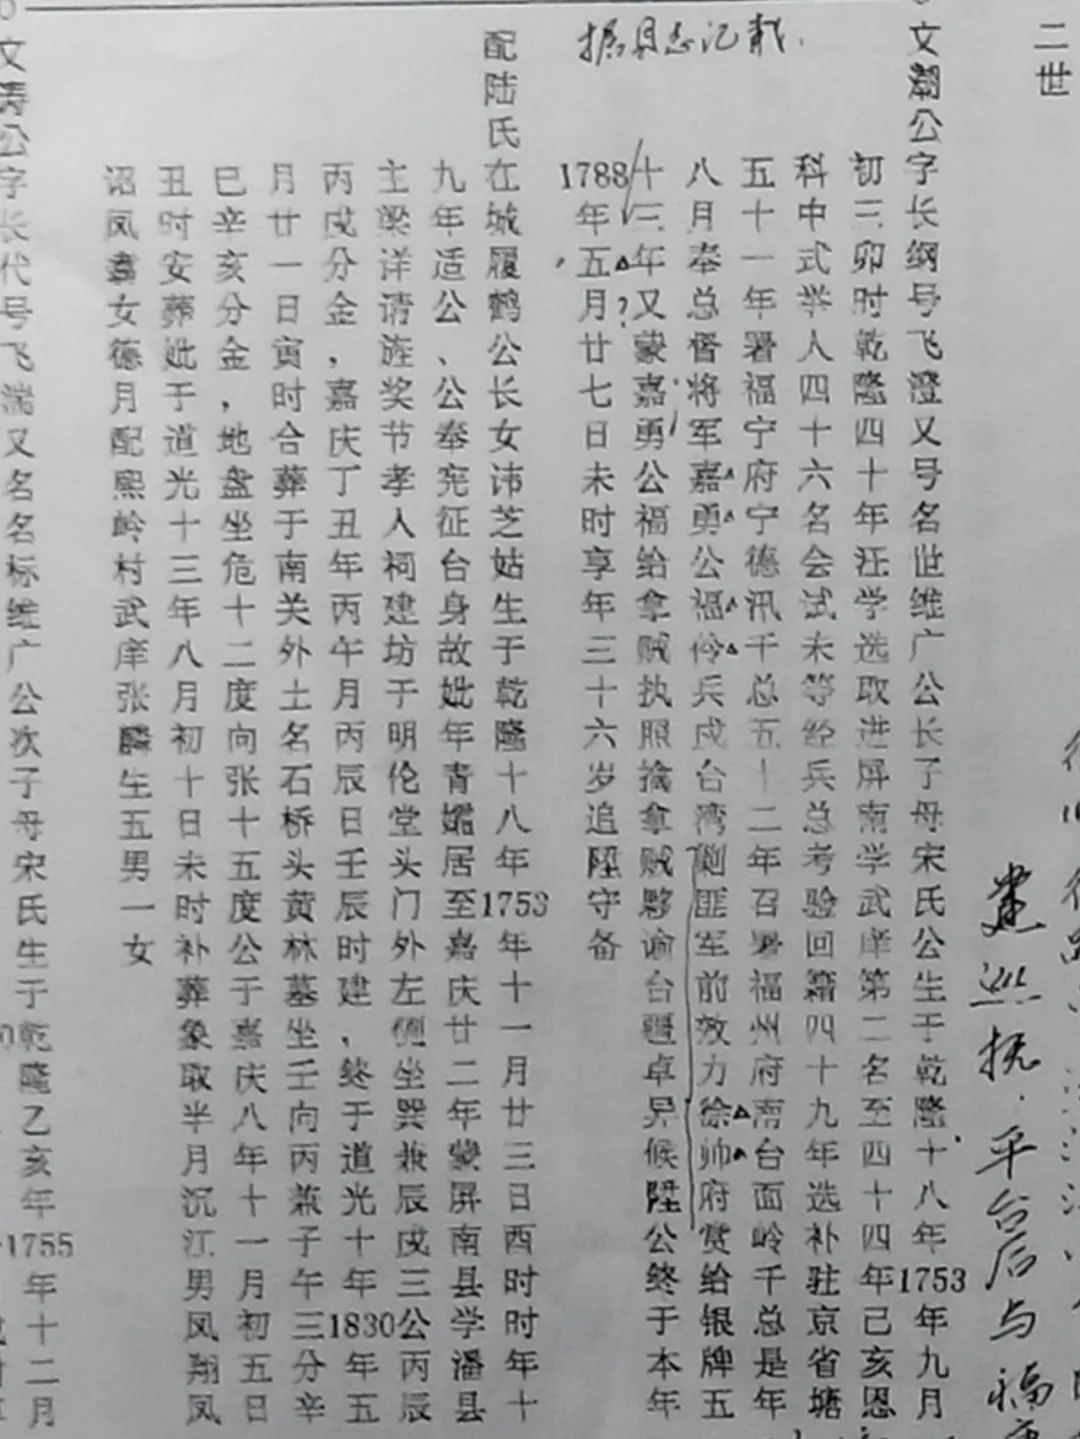 二世
文潮公字长纲号飞澄又号名世维广公长子母宋氏公生于乾隆十八年1753年九月
初三卯时乾隆四十年汪学选取进屏南学武庠第二名至四十四年己亥恩
科中式举人四十六名会试未等经兵总考验回籍四十九年选补驻京省塘
五十一年署福宁府宁德汛千总五十二年召署福州府南台面岭千总是年
八月奉总督将军嘉勇公福伶兵戍台湾剿匪军前效力徐帅府赏给银牌五
十三年又蒙嘉勇公福给拿贼执照擒拿贼夥谕台疆卓异候陞公终于本年
1788年五月廿七日未时享年三十六岁追陞守备
据县志记载.
配陆氏在城履鹤公长女讳芝姑生于乾隆十八年1753年十一月廿三日酉时时年十
九年适公、公奉宪征台身故妣年青孀居至嘉庆廿二年蒙屏南县学潘县
主梁详请旌奖节孝入祠建坊于明伦堂头门外左侧坐巽兼辰戌三公丙辰
丙戌分金，嘉庆丁丑年丙午月丙辰日壬辰时建，终于道光十年1830年五
月廿一日寅时合葬于南关外土名石桥头黄林墓坐壬向丙兼子午三分辛
巳辛亥分金，地盘坐危十二度向张十五度公于嘉庆八年十一月初五日
丑时安葬妣于道光十三年八月初十日未时补葬象取半月沉江男凤翔凤
诏凤翥女德月配熙岭村武庠张麟生五男一女
文涛公字长代号飞湍又名名标维广公次子母宋氏生于乾隆乙亥年1755年十二月
建巡抚.平台后与福